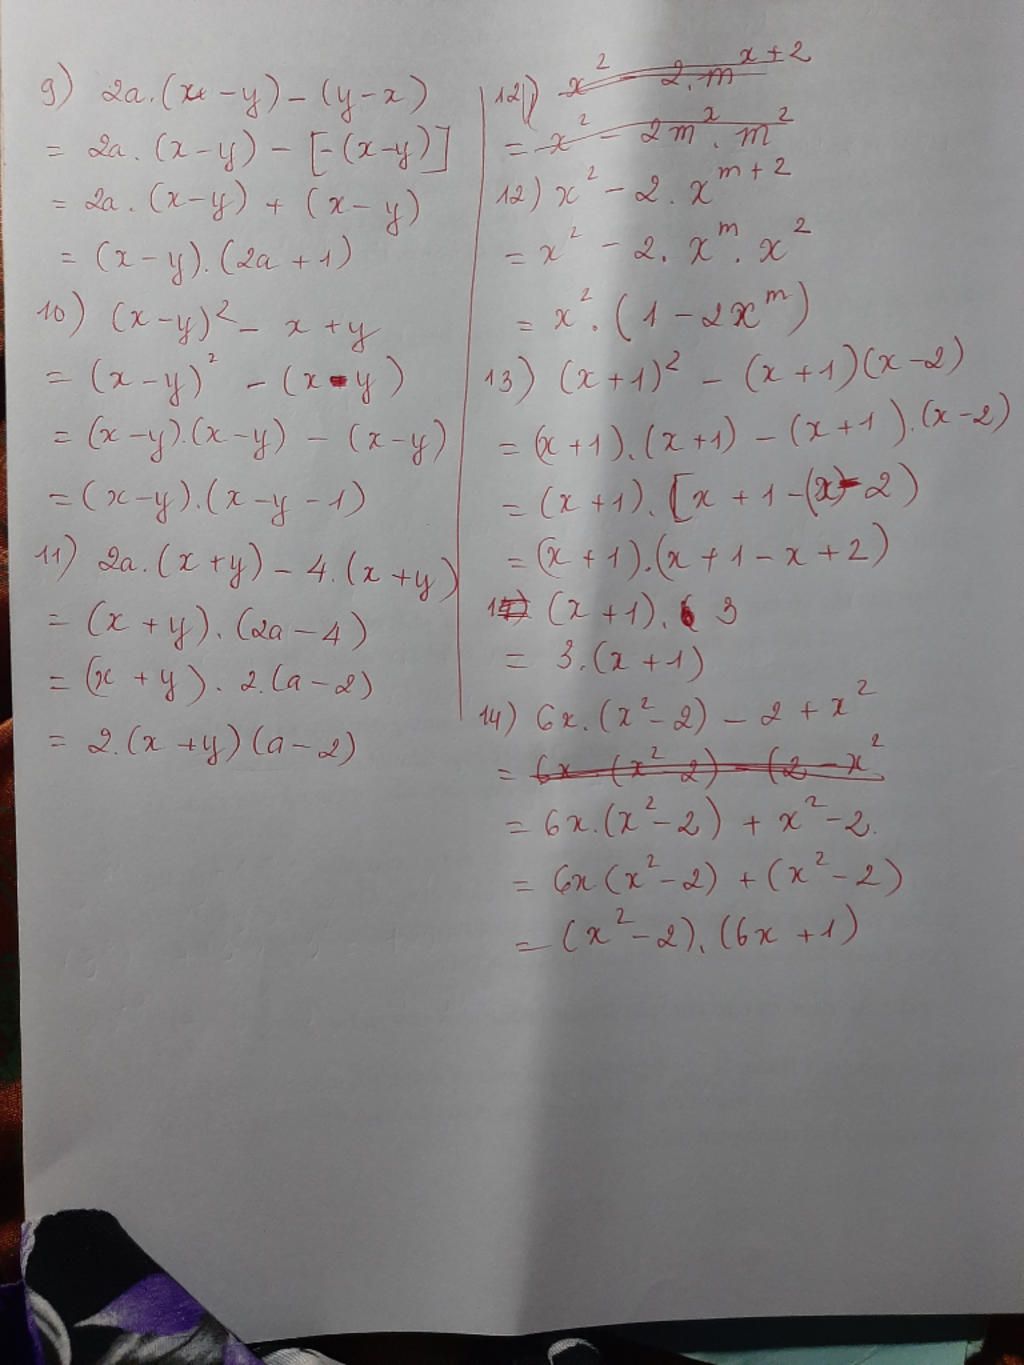 9) 2a.(x-y)-(y-x)
= 2a.(x-y)-[-(x-y)]
= 2a.(x-y)+(x-y)
= (x-y).(2a+1)
10) (x-y)²- x+y
= (x-y)² -(x-y)
= (x-y).(x-y) - (x-y)
= (x-y).(x-y-1)
11) 2a.(x+y)-4.(x+y)
= (x+y).(2a-4)
= (x+y).2.(a-2)
= 2.(x+y)(a-2)
12) x² - 2.m^{x+2}
= x² - 2m^x.m²
12) x²-2.x^{m+2}
= x² - 2.x^m.x²
= x².(1-2x^m)
13) (x+1)² - (x+1)(x-2)
= (x+1).(x+1)-(x+1).(x-2)
= (x+1).[x+1-(x-2)
= (x+1).(x+1-x+2)
(x+1).3
= 3.(x+1)
14) 6x.(x²-2)-2+x²
= 6x.(x²-2)-(2-x²
= 6x.(x²-2)+x²-2.
= 6x(x²-2)+(x²-2)
= (x²-2).(6x+1)